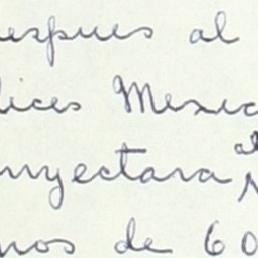 espues al
lices Mexic
nyectara al
nos de 60